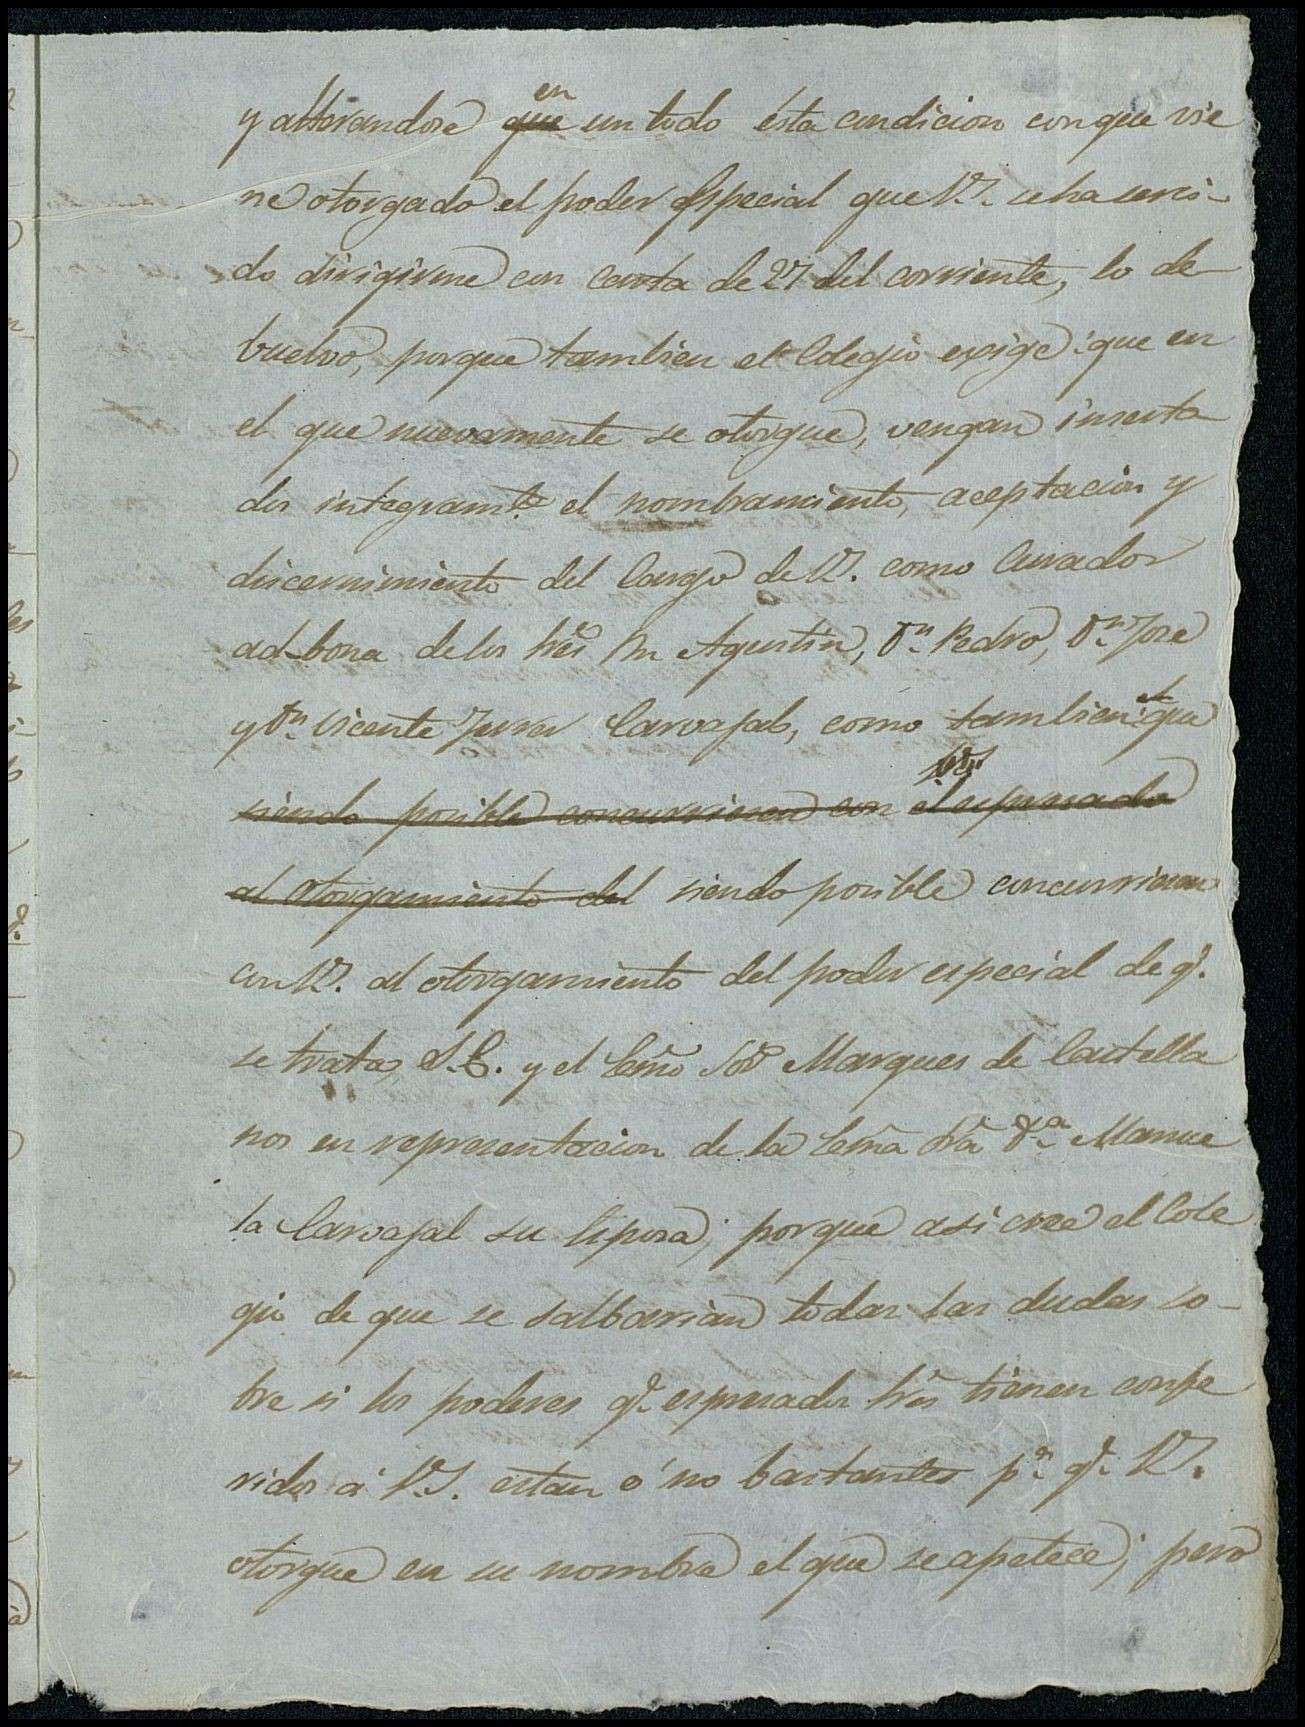 y alterandose en un todo ésta condicion con que vie
ne otorgado el poder especial que V. se ha servi-
do dirigirme con carta de 27 del corriente, lo de-
buelvo, porque tambien el Colegio exige: que en
el que nuevamente se otorgue, vengan inserta
dos integramte. el nombramiento, aceptacion y
discernimiento del Cargo de V. como Curador
ad bona de los Sres. Dn Agustin, Dn. Pedro, Dn. Jose
y Dn. Vicente Carvajal, como tambien el que
siendo posible concurriesen con el espresado
al otorgamiento del siendo posible concurriesen
con V. al otorgamiento del poder especial de q.
se trata, S.E. y el Excmo Sor Marques de Castella
nos en representacion de la Excma Sra Da. Manue
la Carvajal su Esposa; porque asi cree el Cole
gio de que se salbarian todas las dudas so-
bre si los poderes q. espresados Sres tienen confe
ridos á V.S. estan ó no bastantes pa. q. V.
otorgue en su nombre el que se apetece; pero